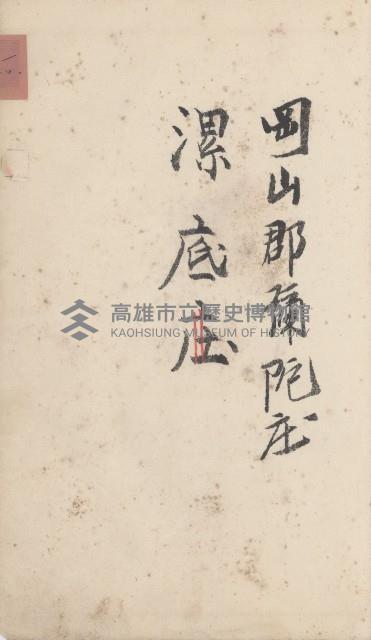 岡山郡彌陀庄
漯底庄
高雄市立歷史博物館
KAOHSIUNG MUSEUM OF HISTORY